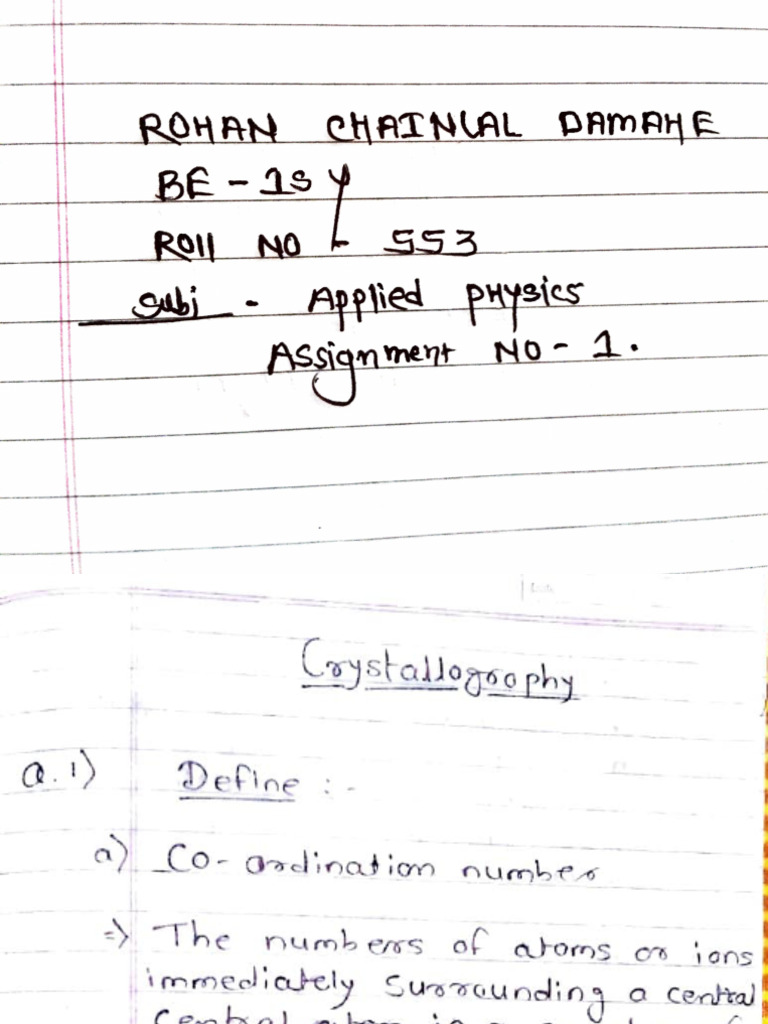 ROHAN CHAINLAL DAMAHE
BE - 1st
Roll NO - 553
Subj - Applied PHysics
Assignment NO - 1.
Crystallography
Q. 1) Define : -
a) Co-ordination number
=> The numbers of atoms or ions
immediately surrounding a central
central atom is